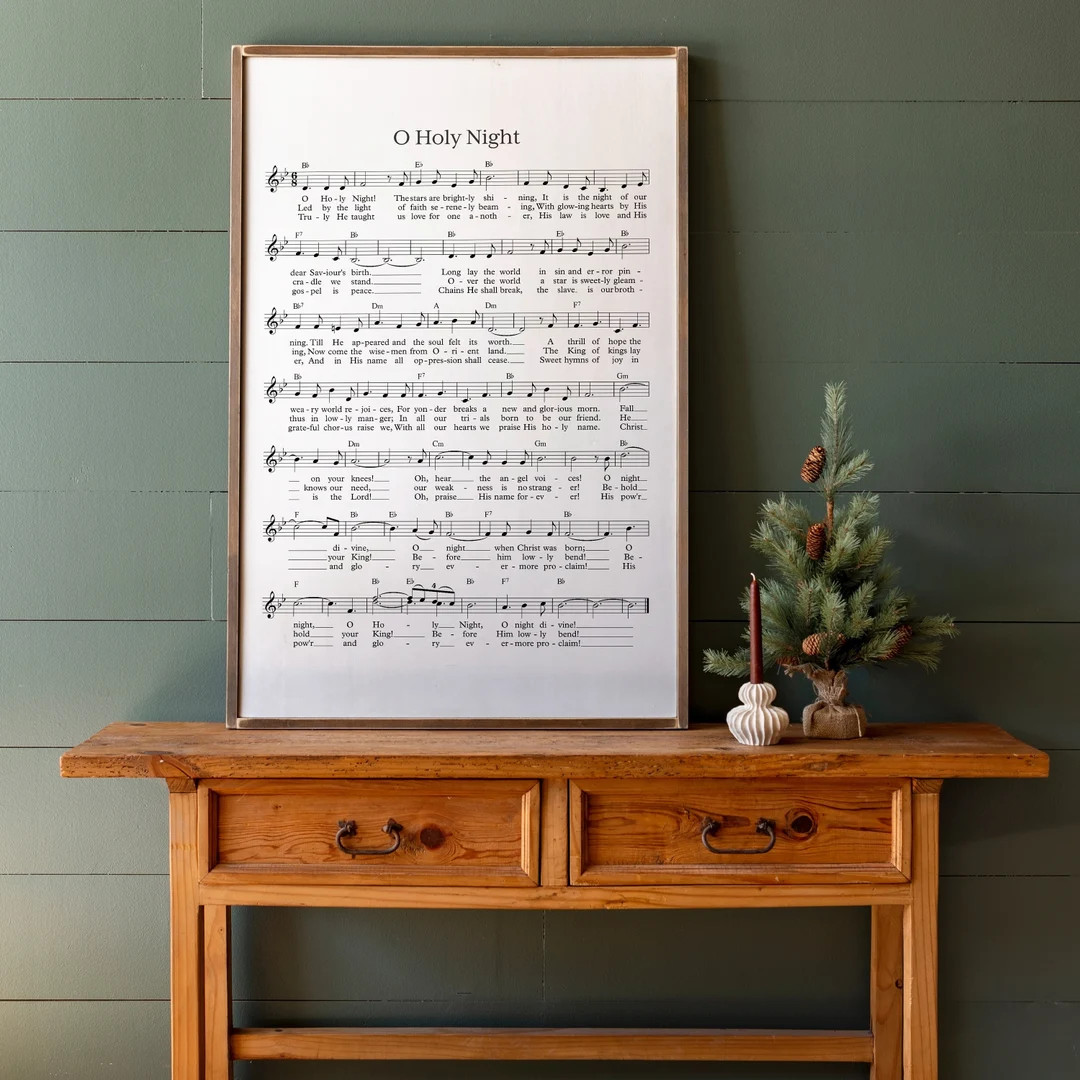 O Holy Night
B♭ E♭ B♭
6
8
O Ho - ly Night! The stars are bright-ly shi - ning, It is the night of our
Led by the light of faith se - rene - ly beam - ing, With glow-ing hearts by His
Tru - ly He taught us love for one a-noth - er, His law is love and His
F7 B♭ B♭ E♭ B♭
dear Sav-iour's birth. Long lay the world in sin and er-ror pin -
cra - dle we stand. O - ver the world a star is sweet-ly gleam -
gos - pel is peace. Chains He shall break, the slave is our broth -
B♭7 Dm A Dm F7
ning. Till He ap-peared and the soul felt its worth. A thrill of hope the
ing, Now come the wise - men from O - ri - ent land. The King of kings lay
er, And in His name all op-pres-sion shall cease. Sweet hymns of joy in
B♭ F7 B♭ Gm
wea - ry world re - joi - ces, For yon - der breaks a new and glor-ious morn. Fall
thus in low - ly man-ger; In all our tri - als born to be our friend. He
grate-ful chor-us raise we, With all our hearts we praise His ho - ly name. Christ
Dm Cm Gm B♭
on your knees! Oh, hear the an - gel voi - ces! O night
knows our need, our weak - ness is no strang - er! Be - hold
is the Lord! Oh, praise His name for - ev - er! His pow'r
F B♭ E♭ B♭ F7 B♭
di - vine, O night when Christ was born; O
your King! Be - fore him low - ly bend! Be -
and glo - ry ev - er - more pro - claim! His
F B♭ E♭ 4 B♭ F7 B♭
night, O Ho - ly Night, O night di - vine!
hold your King! Be - fore Him low - ly bend!
pow'r and glo - ry ev - er-more pro - claim!